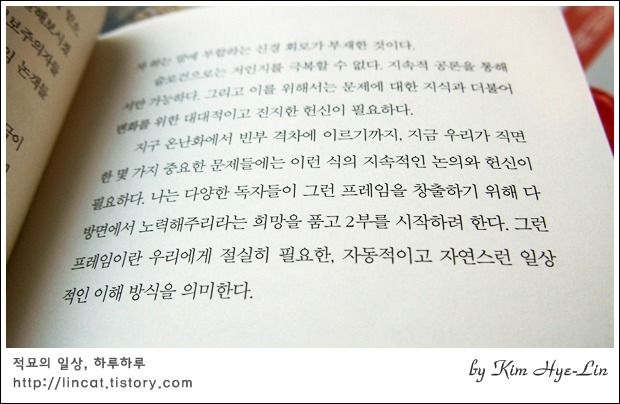 보수주의자들
의 논객들
자 하는 말에 부합하는 신경 회로가 부재한 것이다.
슬로건으로는 저인지를 극복할 수 없다. 지속적 공론을 통해
서만 가능하다. 그리고 이를 위해서는 문제에 대한 지식과 더불어
변화를 위한 대대적이고 진지한 헌신이 필요하다.
지구 온난화에서 빈부 격차에 이르기까지, 지금 우리가 직면
한 몇 가지 중요한 문제들에는 이런 식의 지속적인 논의와 헌신이
필요하다. 나는 다양한 독자들이 그런 프레임을 창출하기 위해 다
방면에서 노력해주리라는 희망을 품고 2부를 시작하려 한다. 그런
프레임이란 우리에게 절실히 필요한, 자동적이고 자연스런 일상
적인 이해 방식을 의미한다.
적묘의 일상, 하루하루
http://lincat.tistory.com
by Kim Hye-Lin